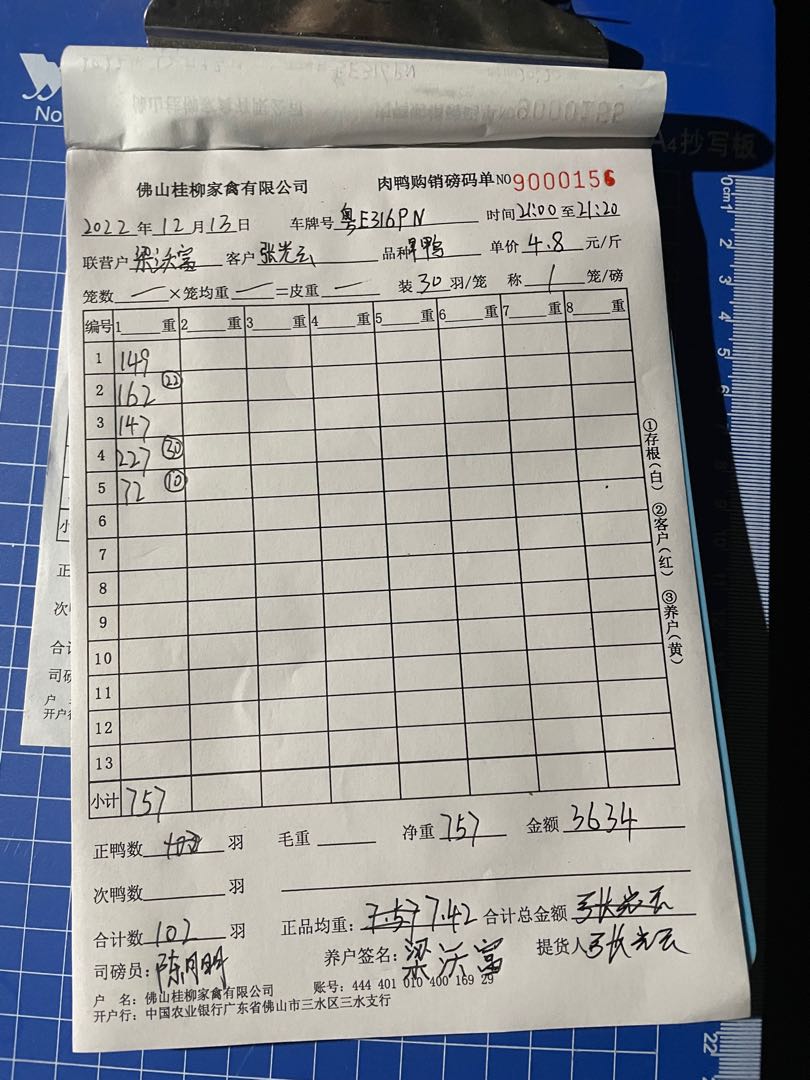 A4抄写板
佛山桂柳家禽有限公司 肉鸭购销磅码单 NO 9000156
2022 年 12 月 13 日 车牌号 粤E316PN 时间 21:00 至 21:20
联营户 梁沃富 客户 张光云 品种 单价 4.8 元/斤
笼数 一 ×笼均重 一 =皮重 一 装 30 羽/笼 称 1 笼/磅
编号 1 重 2 重 3 重 4 重 5 重 6 重 7 重 8 重
1 149
2 162 22
3 147
4 227 30
5 72 10
6
7
8
9
10
11
12
13
小计 757
①存根(白) ②客户(红) ③养户(黄)
正鸭数 羽 毛重 净重 757 金额 3634
次鸭数 羽
合计数 102 羽 正品均重: 7.57 7.42 合计总金额 张光云
司磅员: 陈月明 养户签名: 梁沃富 提货人 张光云
户 名: 佛山桂柳家禽有限公司 账号: 444 401 010 400 169 29
开户行: 中国农业银行广东省佛山市三水区三水支行